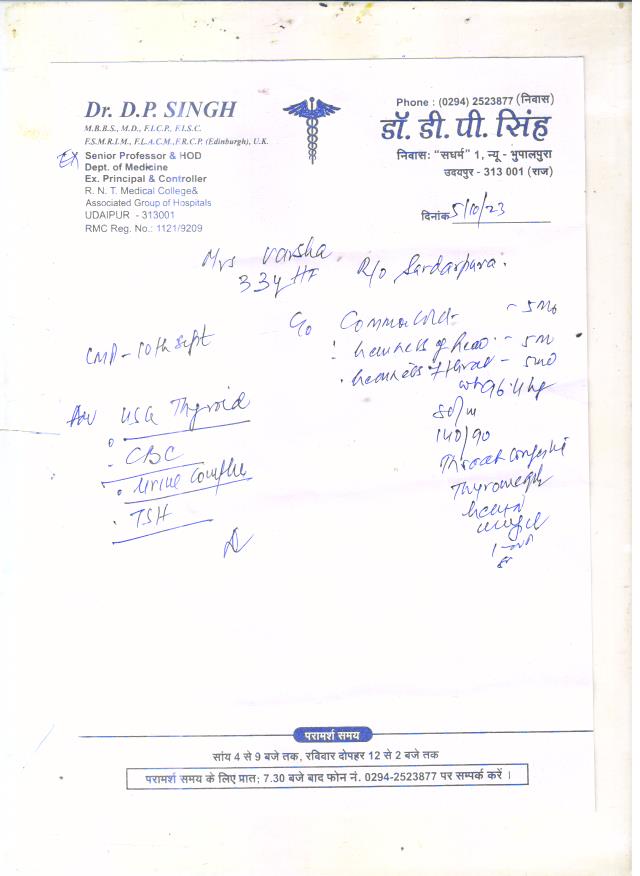 Dr. D.P. SINGH
M.B.B.S., M.D., F.I.C.P., F.I.S.C.
F.S.M.R.I.M., F.L.A.C.M., F.R.C.P. (Edinburgh), U.K.
EX Senior Professor & HOD
Dept. of Medicine
Ex. Principal & Controller
R. N. T. Medical College&
Associated Group of Hospitals
UDAIPUR - 313001
RMC Reg. No.: 1121/9209
Phone : (0294) 2523877 (निवास)
डॉ. डी. पी. सिंह
निवास: "सधर्म" 1, न्यू - भुपालपुरा
उदयपुर - 313 001 (राज)
दिनांक 5/10/23
Mrs Varsha
33y
R/o Sardarpura.
C/o Common cold - 5
heaviness of head - 5
heaviness of throat - 5
wt 96.4 kg
80/m
140/90
Throat
LMP - 10th Sept
Adv USG Thyroid
CBC
Urine
TSH
परामर्श समय
सांय 4 से 9 बजे तक, रविवार दोपहर 12 से 2 बजे तक
परामर्श समय के लिए प्रात; 7.30 बजे बाद फोन नं. 0294-2523877 पर सम्पर्क करें ।